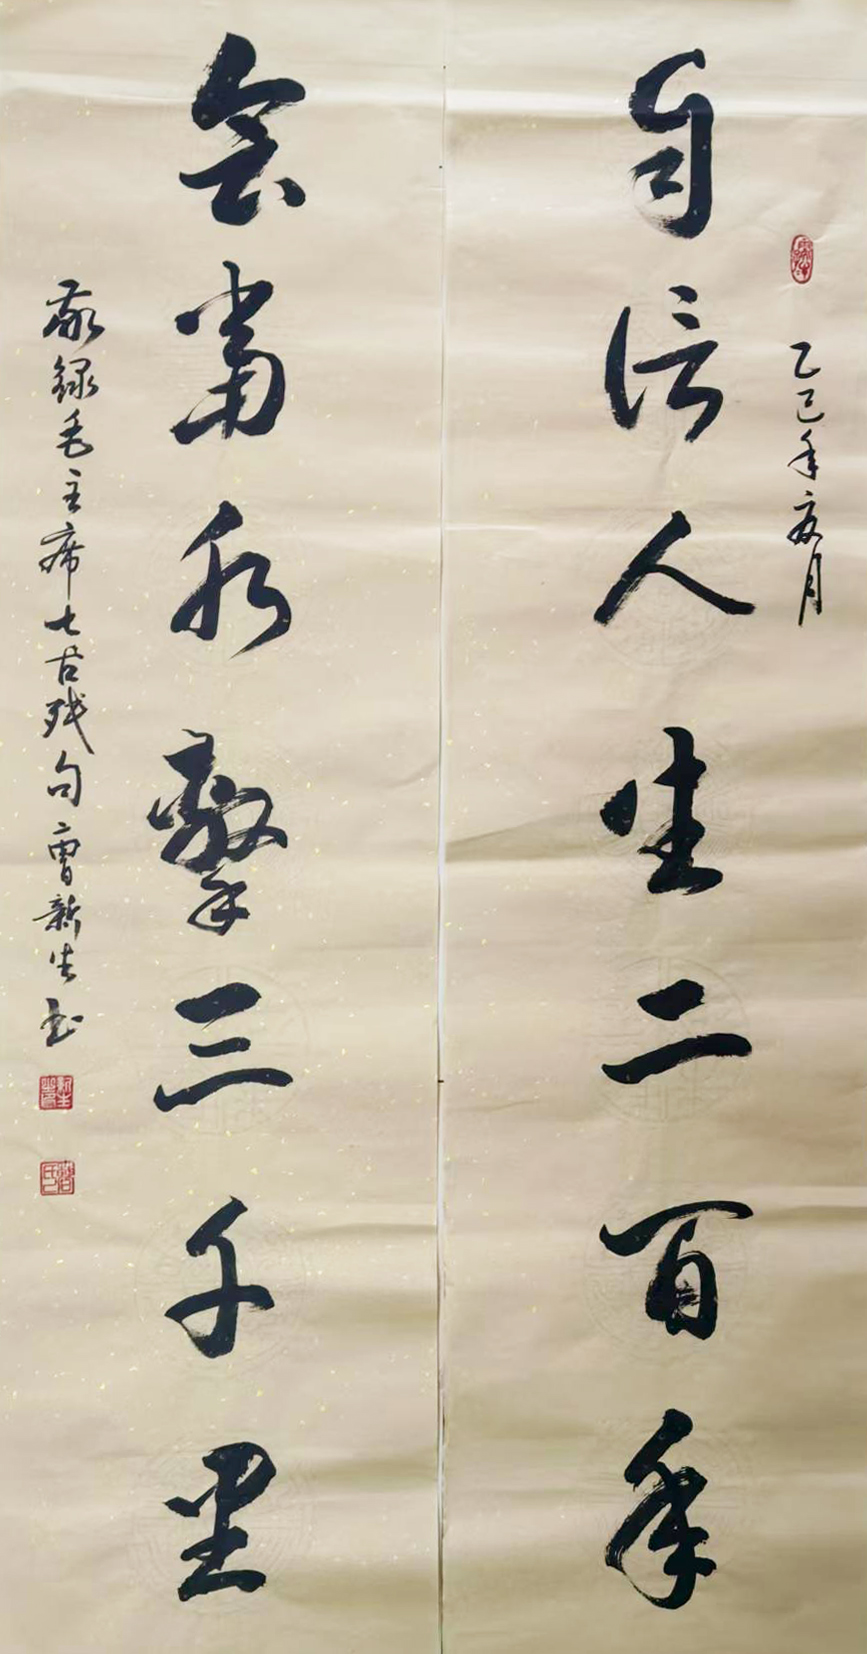 乙巳年夏月
自信人生二百年
会當水擊三千里
敬録毛主席七古残句曹新生书